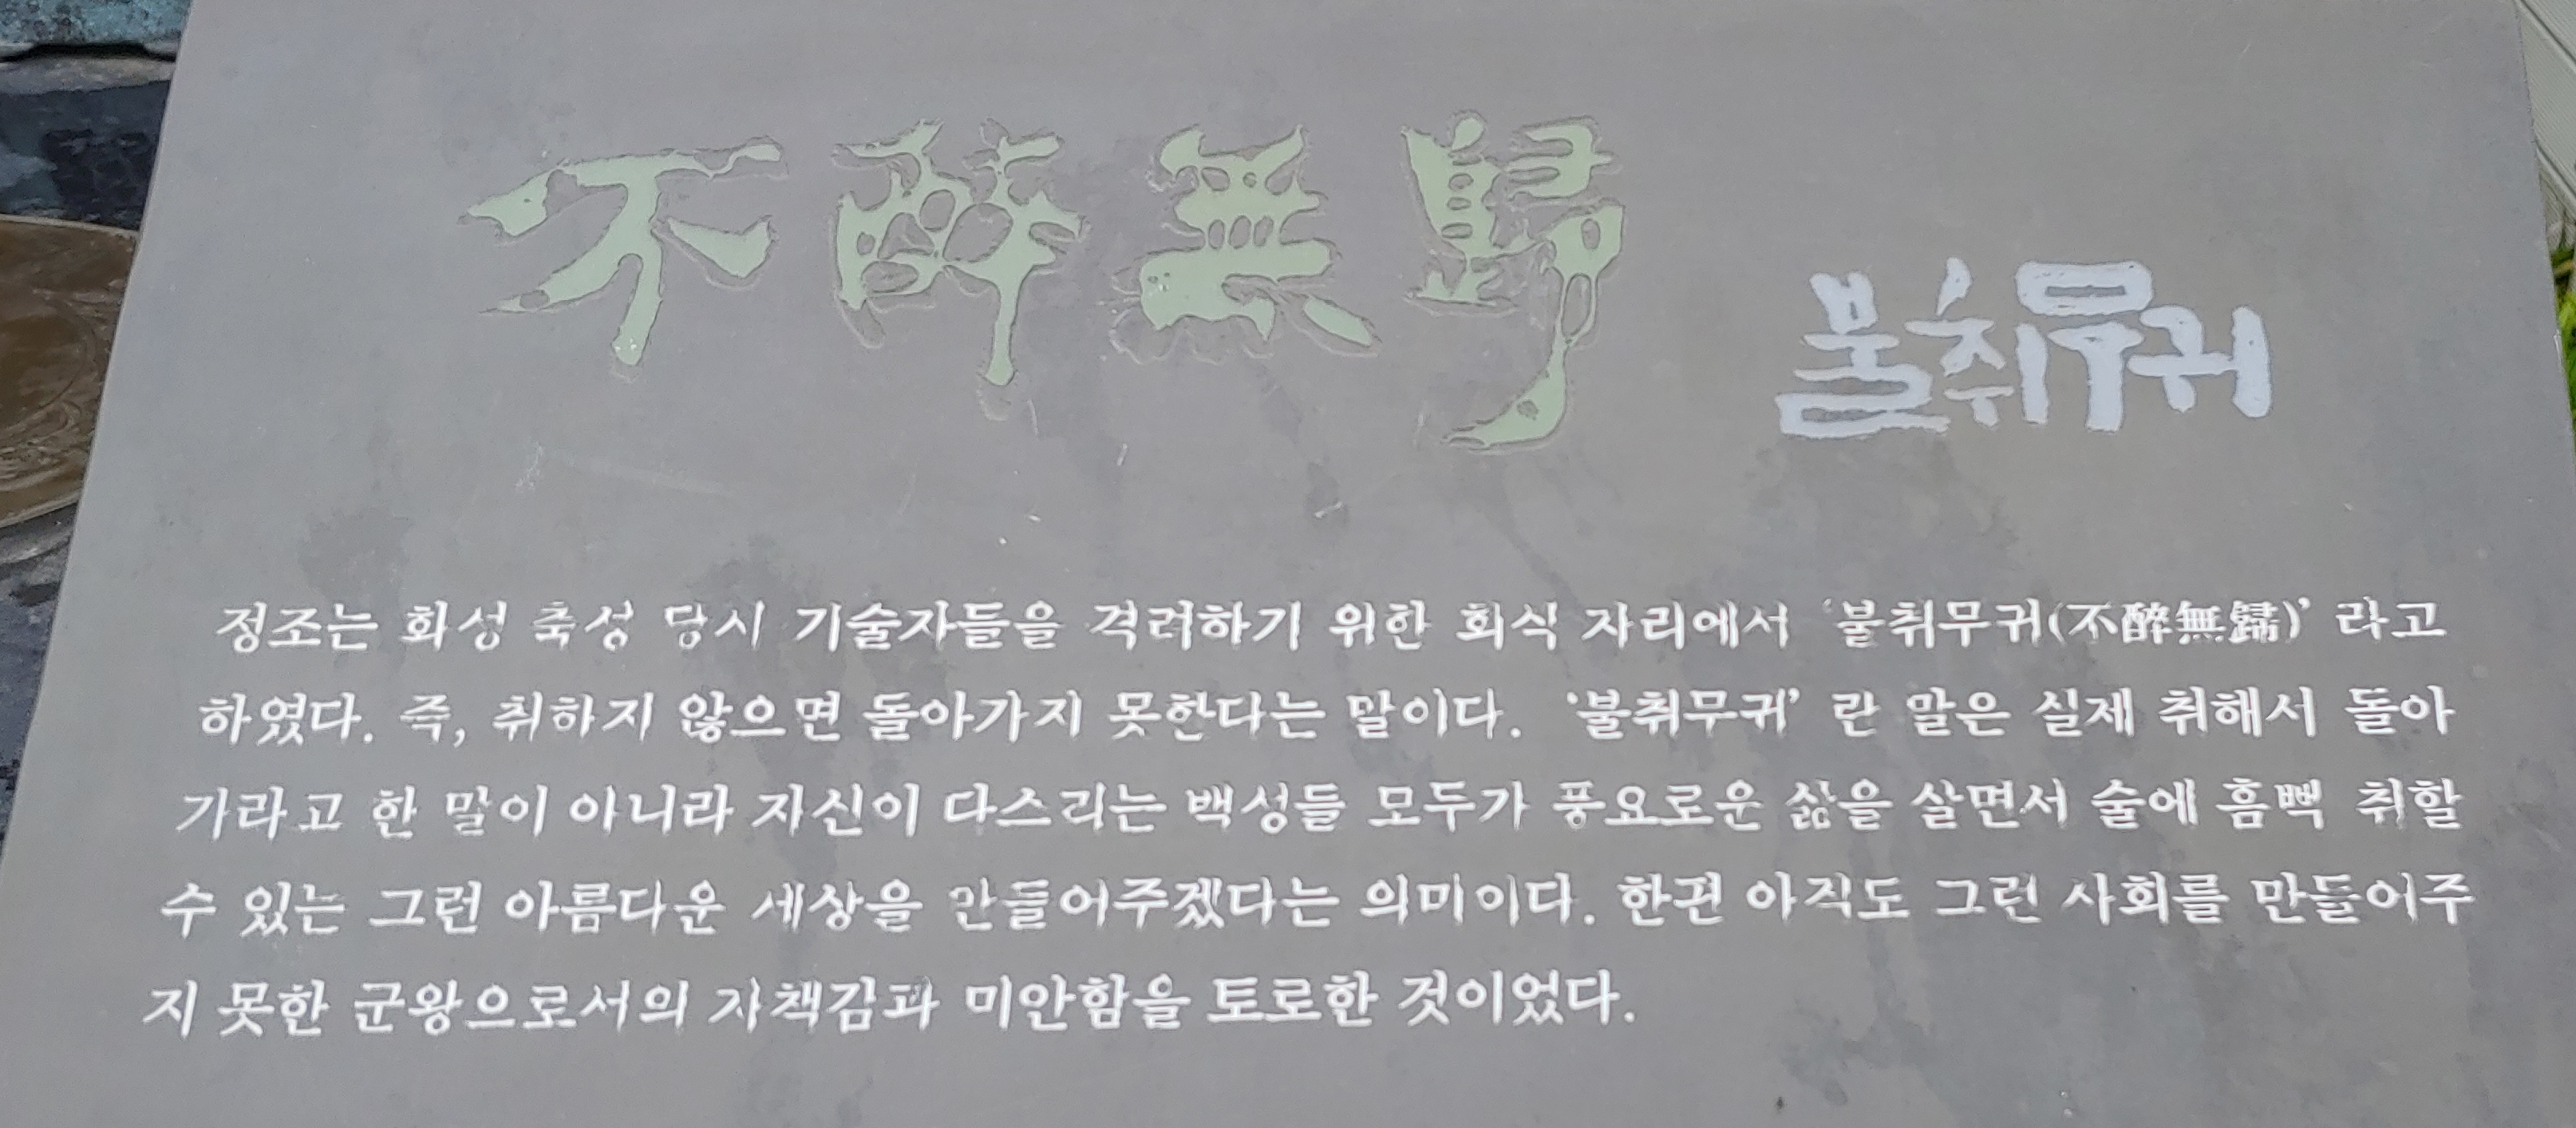 不醉無歸 불취무귀
정조는 화성 축성 당시 기술자들을 격려하기 위한 회식 자리에서 ‘불취무귀(不醉無歸)’ 라고
하였다. 즉, 취하지 않으면 돌아가지 못한다는 말이다. ‘불취무귀’ 란 말은 실제 취해서 돌아
가라고 한 말이 아니라 자신이 다스리는 백성들 모두가 풍요로운 삶을 살면서 술에 흠뻑 취할
수 있는 그런 아름다운 세상을 만들어주겠다는 의미이다. 한편 아직도 그런 사회를 만들어주
지 못한 군왕으로서의 자책감과 미안함을 토로한 것이었다.